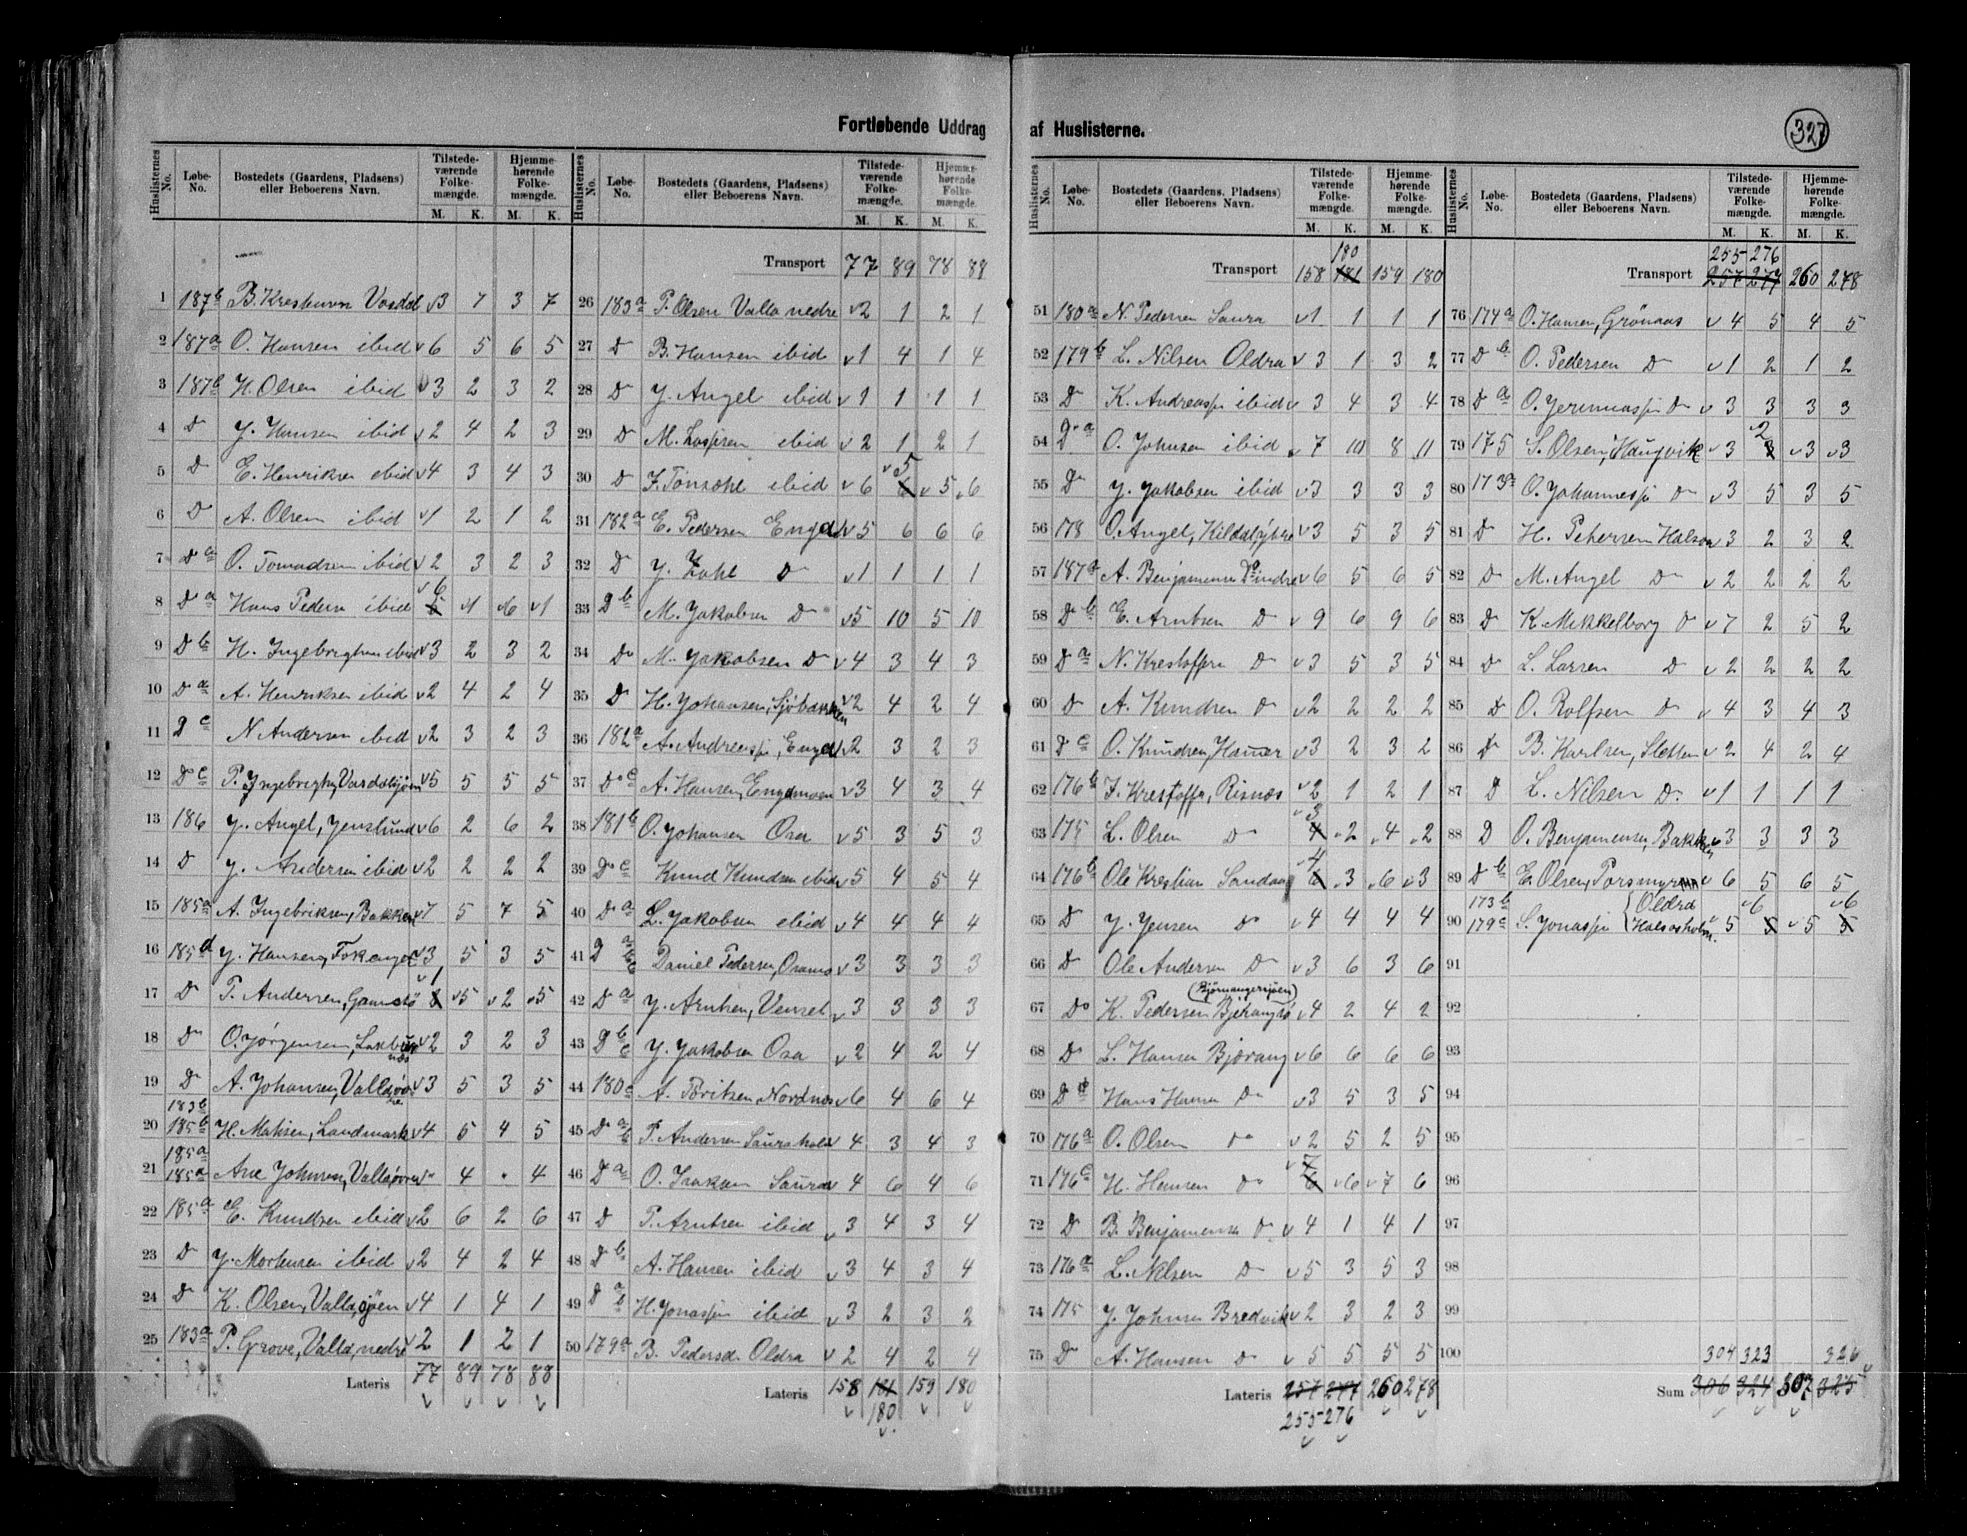 Fortløbende Uddrag af Huslisterne.
327
Huslisternes No. Løbe-No. Bostedets (Gaardens, Pladsens) eller Beboerens Navn. Tilstedeværende Folkemængde. M. K. Hjemmehørende Folkemængde. M. K.
1 187b B. 3 7 3 7
2 187a O. Hansen ibid 6 5 6 5
3 187b H. Olsen ibid 3 2 3 2
4 Do J. Hansen ibid 2 4 2 3
5 Do E. Henriksen ibid 4 3 4 3
6 Do A. Olsen ibid 1 2 1 2
7 Do a O. Tomadsen ibid 2 3 2 3
8 Do a Hans Pedersen ibid 6 1 6 1
9 Do b H. Ingebrigtsen ibid 3 2 3 2
10 Do a A. Henriksen ibid 2 4 2 4
11 Do c N. Andersen ibid 2 3 2 3
12 Do c P. Ingebrigtsen, 5 5 5 5
13 186 J. Angel, Jenslund 6 2 6 2
14 Do J. Andersen ibid 2 2 2 2
15 185a A. Ingebriksen, Bakken 7 5 7 5
16 185d J. Hansen, 3 5 3 5
17 Do P. Andersen, 1 5 2 5
18 Do O. Jørgensen, 2 3 2 3
19 Do A. Johansen, 3 5 3 5
20 183b 185b H. Landmark 4 5 4 5
21 185a 185a Ane Johnsen, Valla 4 4
22 185a E. Knudsen ibid 2 6 2 6
23 Do J. Mortensen ibid 2 4 2 4
24 Do K. Olsen, Vallasjøen 4 1 4 1
25 183a P. Grove, Valla, nedre 2 1 2 1
Lateris 77 89 78 88
Huslisternes No. Løbe-No. Bostedets (Gaardens, Pladsens) eller Beboerens Navn. Tilstedeværende Folkemængde. M. K. Hjemmehørende Folkemængde. M. K.
Transport 77 89 78 88
26 183a P. Olsen Valla nedre 2 1 2 1
27 Do B. Hansen ibid 1 4 1 4
28 Do J. Angel ibid 1 1 1 1
29 Do M. ibid 2 1 2 1
30 Do ibid 6 5 5 6
31 182a E. Pedersen 5 6 6 6
32 Do J. Zahl Do 1 1 1 1
33 Do b M. Jakobsen Do 5 10 5 10
34 Do M. Jakobsen Do 4 3 4 3
35 Do H. Johansen, Sjöbakken 2 4 2 4
36 182a A. 2 3 2 3
37 Do c A. Hansen, Engdmoen 3 4 3 4
38 181b O. Johansen Osa 5 3 5 3
39 Do c Knud Knudsen ibid 5 4 5 4
40 Do a L. Jakobsen ibid 4 4 4 4
41 Daniel Pedersen, 3 3 3 3
42 Do a J. Arntsen, 3 3 3 3
43 Do J. Jakobsen Osa 2 4 2 4
44 180c A. Nordnes 6 4 6 4
45 Do P. Andersen 4 3 4 3
46 Do a O. Isaksen Saura 4 6 4 6
47 Do P. Arntsen ibid 3 4 3 4
48 Do b A. Hansen ibid 3 4 3 4
49 Do a b H. ibid 3 2 3 2
50 179a B. Pedersd. Oldra 2 4 2 4
Lateris 158 181 159 180
180
Huslisternes No. Løbe-No. Bostedets (Gaardens, Pladsens) eller Beboerens Navn. Tilstedeværende Folkemængde. M. K. Hjemmehørende Folkemængde. M. K.
180
Transport 158 181 159 180
51 180a N. Pedersen Saura 1 1 1 1
52 179b L. Nilsen Oldra 3 1 3 2
53 Do K. ibid 3 4 3 4
54 Do a O. Johnsen ibid 7 10 8 11
55 Do J. Jakobsen ibid 3 3 3 3
56 178 O. Angel, 3 5 3 5
57 A. Benjaminsen Do indre 6 5 6 5
58 Do b E. Arntsen Do 9 6 9 6
59 Do a N. Do 3 5 3 5
60 Do A. Do 2 2 2 2
61 Do c O. Knudsen, 3 2 3 2
62 176b Risnes 2 1 2 1
63 175 L. Olsen Do 3 2 4 2
64 176b Ole Krestian 4 3 6 3
65 Do J. Jensen Do 4 4 4 4
66 Do Ole Andersen Do 3 6 3 6
(Bjørnangersjøen)
67 Do K. Pedersen 4 2 4 2
68 Do L. Hansen Bjærang 6 6 6 6
69 Do Hans Hansen Do 3 5 3 5
70 176a O. Olsen Do 2 5 2 5
71 176c H. Hansen Do 7 6 7 6
72 Do B. Benjaminsen Do 4 1 4 1
73 176a L. Nilsen Do 5 3 5 3
74 175 J. Johnsen Bredvik 2 3 2 3
75 Do A. Hansen Do 5 5 5 5
Lateris 257 277 260 278
255 276
Huslisternes No. Løbe-No. Bostedets (Gaardens, Pladsens) eller Beboerens Navn. Tilstedeværende Folkemængde. M. K. Hjemmehørende Folkemængde. M. K.
255 276
Transport 257 277 260 278
76 174a O. Hansen, Grönaas 4 5 4 5
77 Do b O. Pedersen Do 1 2 1 2
78 Do a O. Do 3 3 3 3
79 175 S. Olsen, Haugvik 3 2 3 3
80 173a O. Do 3 5 3 5
81 Do H. Petersen 3 2 3 2
82 Do M. Angel Do 2 2 2 2
83 Do K. Mikkelborg Do 7 2 5 2
84 Do L. Larsen Do 2 2 2 2
85 Do O. Rolfsen Do 4 3 4 3
86 Do B. Karlsen, Sletten 2 4 2 4
87 Do L. Nilsen Do 1 1 1 1
88 Do O. Benjaminsen, Bakken 3 3 3 3
89 Do b E. Olsen, 6 5 6 5
90 173b 179c Oldra 5 6 5 6
91
92
93
94
95
96
97
98
99
100
304 323 326
Sum 306 324 307 325